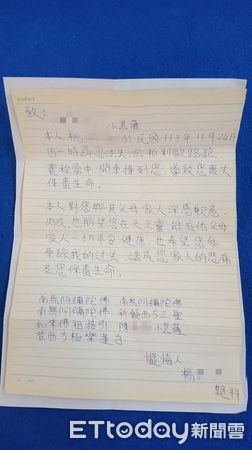 致：
小菩薩
本人楊 於民國113年11月24日
因一時疏忽過失於柏利歐路跑
賽程當中，開車撞到您，導致您喪失
保貴生命。
本人對您與其父母家人深感歉意、
內疚，也盼望您在天之靈，能庇佑父母
家人一切平安健康，也希望您能
原諒我的過失，造成您家人的悲痛
及您保貴生命。
南無阿彌陀佛 南無阿彌陀佛
南無阿彌陀佛 祈願西方三聖
如來佛祖接引 陳 小菩薩
登西方極樂蓮台
懺悔人
楊
ETtoday新聞雲